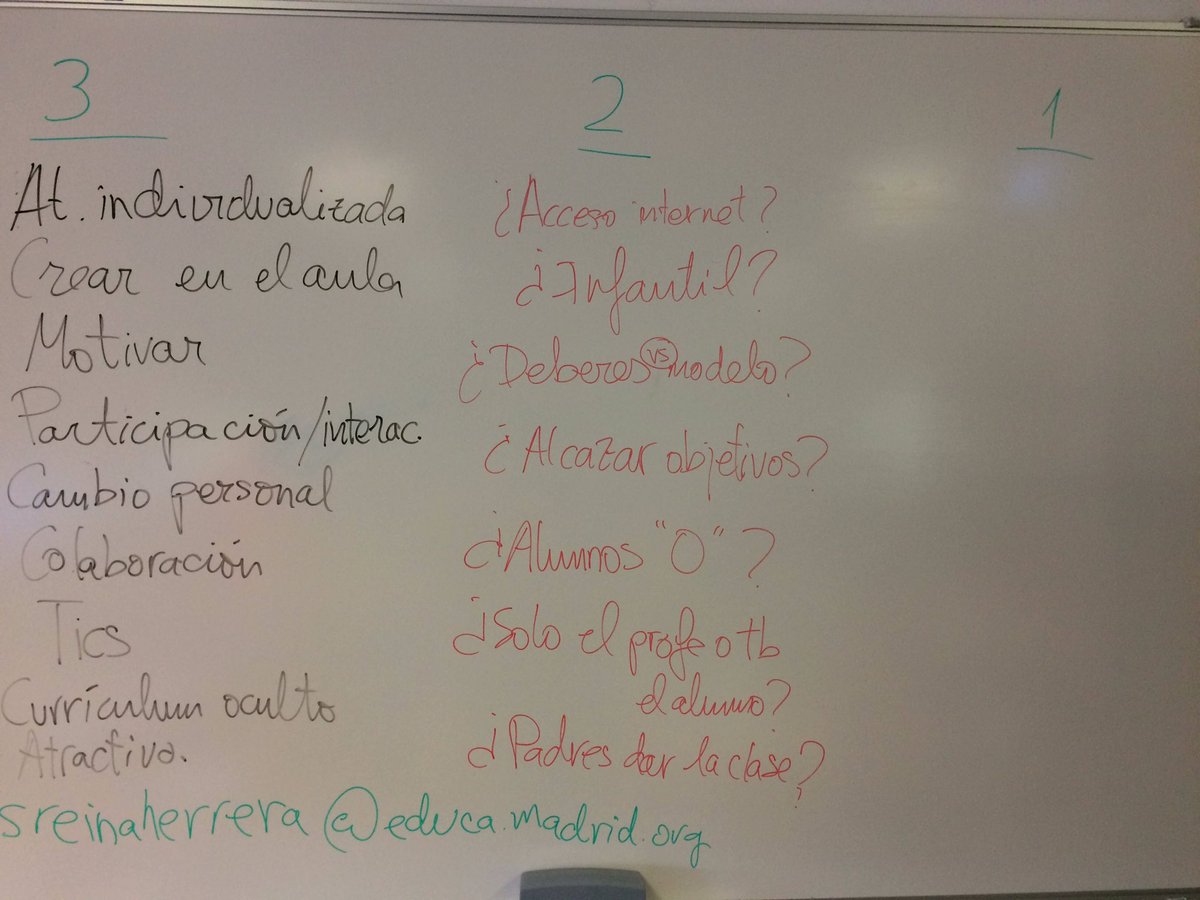 3
At. individualizada
Crear en el aula
Motivar
Participación/interac.
Cambio personal
Colaboración
Tics
Currículum oculto
Atractivo.
2
¿Acceso internet?
¿Infantil?
¿Deberes vs modelo?
¿Alcazar objetivos?
¿Alumnos "O"?
¿Solo el profe o tb
el alumno?
¿Padres dar la clase?
1
sreinaherrera@educa.madrid.org